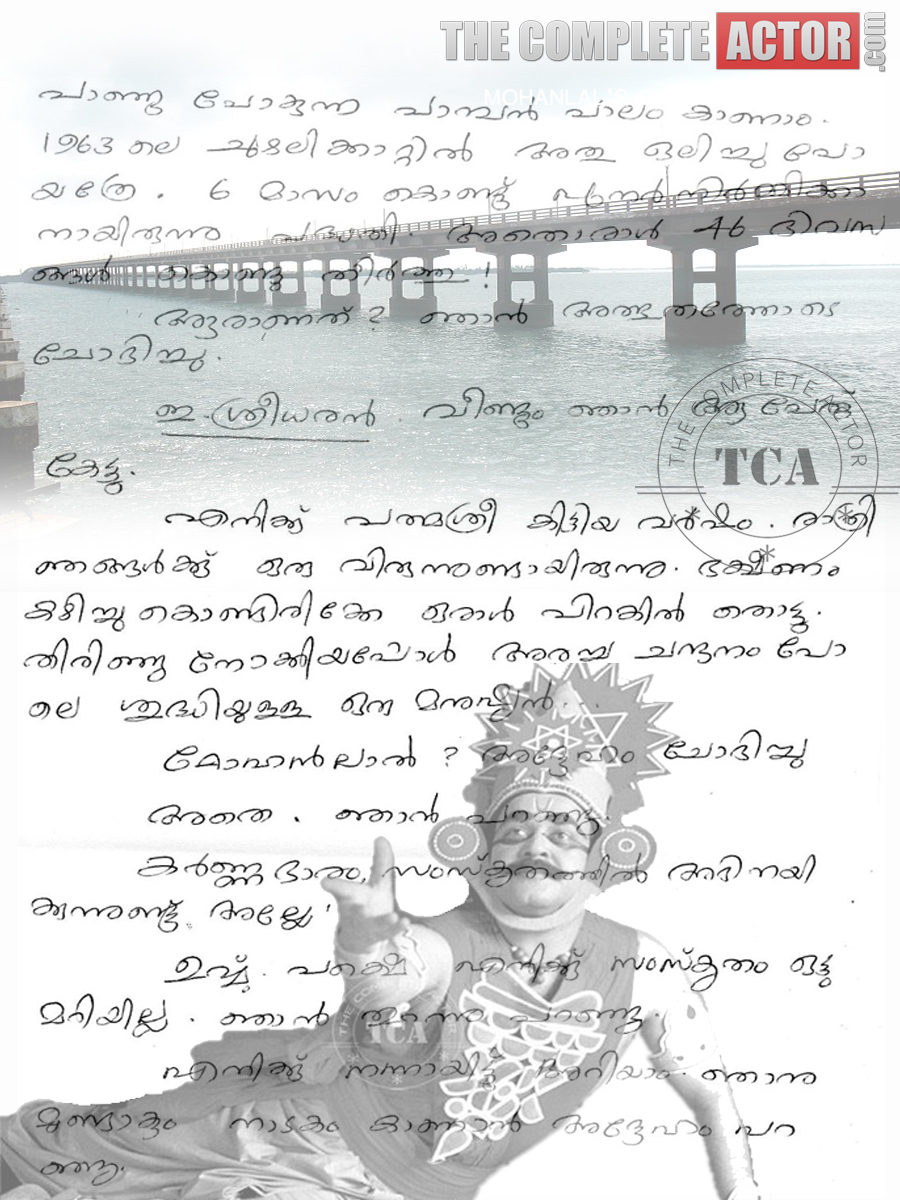 THE COMPLETE ACTOR .com
MOHANLAL'S
പാഞ്ഞു പോകുന്ന പാമ്പൻ പാലം കാണാം.
1963 ലെ ചുഴലിക്കാറ്റിൽ അതു ഒലിച്ചു പോ
യത്രേ. 6 മാസം കൊണ്ട് പുനർനിർമ്മിക്കാ
നായിരുന്നു പദ്ധതി. അതൊരാൾ 46 ദിവസ
ങ്ങൾ കൊണ്ടു തീർത്തു!
അതാരാണത്? ഞാൻ അത്ഭുതത്തോടെ
ചോദിച്ചു.
ഇ. ശ്രീധരൻ. വീണ്ടും ഞാൻ ആ പേരു
കേട്ടു.
THE COMPLETE ACTOR
TCA
എനിക്ക് പത്മശ്രീ കിട്ടിയ വർഷം. രാത്രി
ഞങ്ങൾക്ക് ഒരു വിരുന്നുണ്ടായിരുന്നു. ഭക്ഷണം
കഴിച്ചു കൊണ്ടിരിക്കേ ഒരാൾ പിറകിൽ തൊട്ടു.
തിരിഞ്ഞു നോക്കിയപ്പോൾ അരച്ച ചന്ദനം പോ
ലെ ശുദ്ധിയുള്ള ഒരു മനുഷ്യൻ...
മോഹൻലാൽ? അദ്ദേഹം ചോദിച്ചു
അതെ. ഞാൻ പറഞ്ഞു.
കർണ്ണഭാരം, സംസ്കൃതത്തിൽ അഭിനയി
ക്കുന്നുണ്ട് അല്ലേ'
ഉവ്വ്. പക്ഷെ എനിക്ക് സംസ്കൃതം ഒട്ടു
മറിയില്ല. ഞാൻ തുറന്നു പറഞ്ഞു.
THE COMPLETE ACTOR
TCA
എനിക്ക് നന്നായിട്ട് അറിയാം. ഞാനു
മുണ്ടാകും നാടകം കാണാൻ അദ്ദേഹം പറ
ഞ്ഞു.